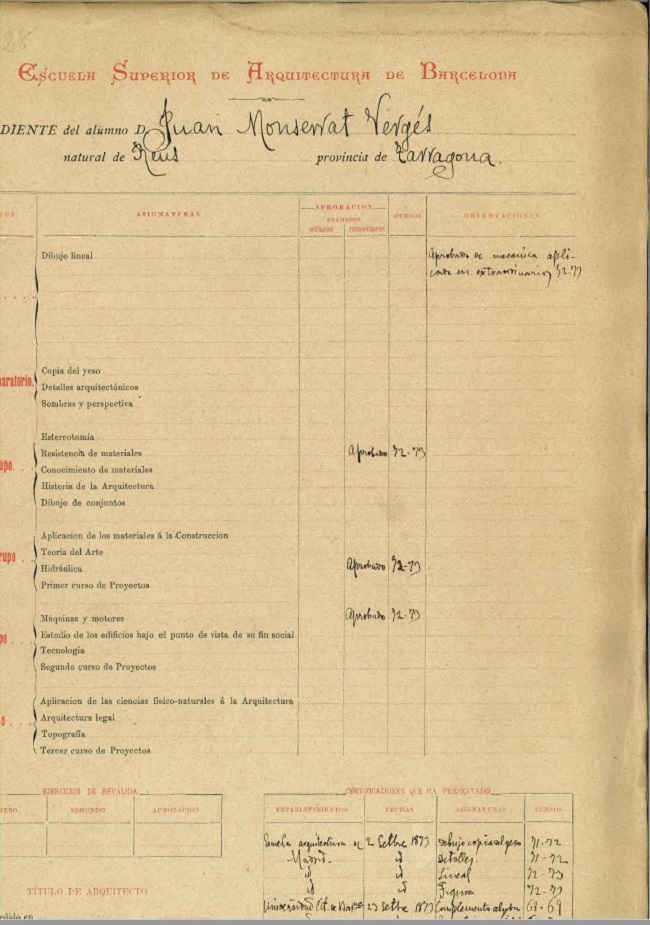 28
ESCUELA SUPERIOR DE ARQUITECTURA DE BARCELONA
DIENTE del alumno D. Juan Monserrat Vergés
natural de Reus provincia de Tarragona.
ASIGNATURAS APROBACION CURSOS OBSERVACIONES
EXÁMENES
ordinarios extraordinarios
Dibujo lineal Aprobado de mecánica apli-
cada en extraordinarios 72-73
aratorio. Copia del yeso
Detalles arquitectónicos
Sombras y perspectiva
Estereotomía
upo. Resistencia de materiales Aprobado 72-73
Conocimiento de materiales
Historia de la Arquitectura
Dibujo de conjuntos
Aplicacion de los materiales á la Construccion
rupo Teoría del Arte
Hidráulica Aprobado 72-73
Primer curso de Proyectos
Máquinas y motores Aprobado 72-73
po Estudio de los edificios bajo el punto de vista de su fin social
Tecnología
Segundo curso de Proyectos
Aplicacion de las ciencias físico-naturales á la Arquitectura
o Arquitectura legal
Topografía
Tercer curso de Proyectos
EJERCICIOS DE REVÁLIDA
MERO SEGUNDO APROBACION
CERTIFICACIONES QUE HA PRESENTADO
ESTABLECIMIENTOS FECHAS ASIGNATURAS CURSOS
Escuela arquitectura de 2 Setbre 1873 Dibujo copia del yeso 71-72
Madrid. id Detalles. 71-72
id id Lineal 72-73
id id Figura 72-73
Universidad lit. de 23 Setbre 1873 Complemento algebra 68-69
TÍTULO DE ARQUITECTO
edido en